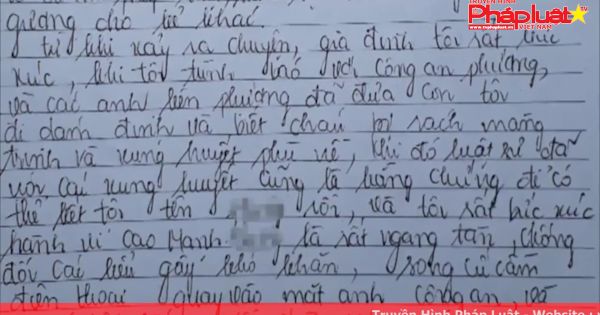 TRUYỀN HÌNH
Pháp luật
VIỆT NAM
gương cho kẻ khác.
từ khi xảy ra chuyện, gia đình tôi rất bức
xúc, khi tôi trình báo với công an phường,
và các anh bên phường đã đưa con tôi
đi danh định và biết cháu bị rách màng
trinh và xung huyết phù nề, khi đó luật sư đã
với cái xung huyết cũng là bằng chứng để có
thể kết tội tên rồi, và tôi rất bức xúc
hành vi Cao Mạnh là rất ngang tàn, chống
đối cái liều gây khó khăn, song cứ cầm
điện thoại quay vào mặt anh công an, và
Truyền Hình Pháp Luật - Website :